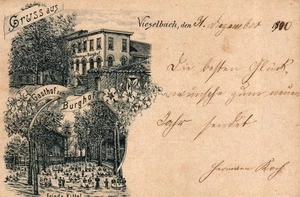 Gruss aus
Vieselbach, den 31. Dezember 1900
Gasthof zum
Burghof
Die besten Glück-
wünsche zum neuen
Jahr sendet
Hermann Koch
Frieda Kittel